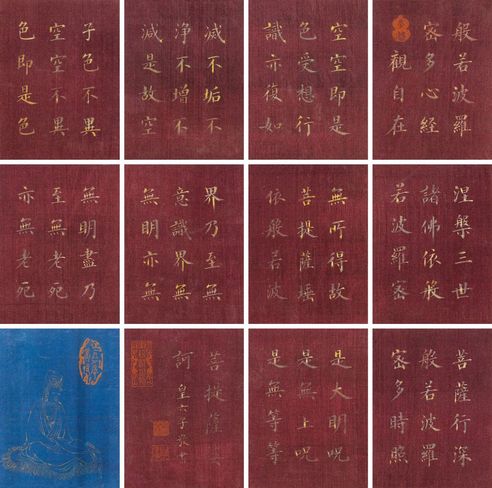 般若波羅
密多心經
觀自在
空空即是
色受想行
識亦復如
滅不垢不
淨不增不
減是故空
子色不異
空空不異
色即是色
涅槃三世
諸佛依般
若波羅密
無所得故
菩提薩埵
依般若波
界乃至無
意識界無
無明亦無
無明盡乃
至無老死
亦無老死
菩薩行深
般若波羅
密多時照
是大明呪
是無上呪
是無等等
菩提薩婆
訶 皇六子